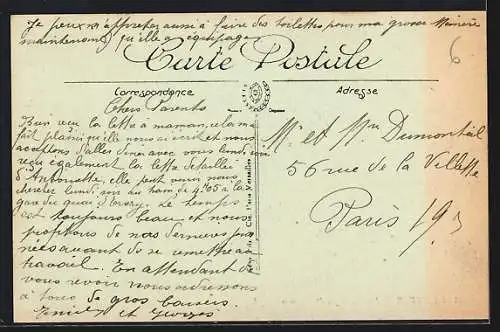 Je peux m'apprêter aussi à faire des toilettes pour ma grosse
maintenant qu'elle a équipages
Carte Postale
Correspondance
Adresse
Chers Parents
Bien reçu la lettre à maman, cela m'a
fait plaisir qu'elle nous ai écrit et nous
acceptons d'aller dîner avec vous lundi, on
reçu également la lettre détaillée
d'Antoinette, elle peut venir nous
chercher lundi soir au train de 4h05 à la
gare du quai d'Orsay. Le temps
est toujours beau et nous
profitons de nos dernières jour
nées avant de se remettre au
travail. En attendant de
vous revoir nous adressons
à tous de gros baisers
et Georges
Mr et Mme Dumontiel
56 rue de la Villette
Paris 19e